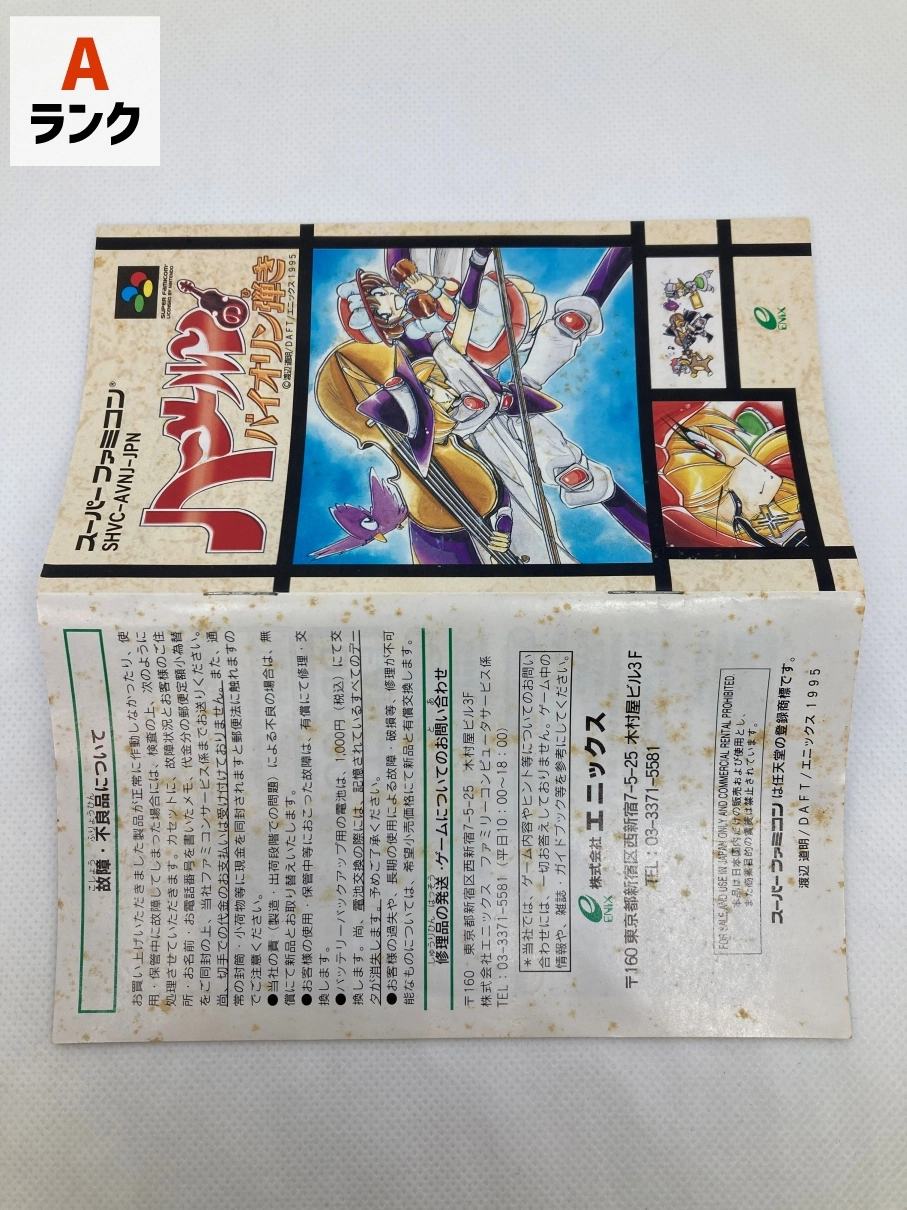 A
ランク
スーパーファミコン®
SHVC-AVNJ-JPN
SUPER FAMICOM
LICENSED BY NINTENDO
ハーメルンの
バイオリン弾き
©渡辺道明/DAFT/エニックス1995
ENIX
こしょう ふりょうひん
故障・不良品について
お買い上げいただきました製品が正常に作動しなかったり、使
用・保管中に故障してしまった場合には、検査の上、次のように
処理させていただきます。カセットに、故障状況とお客様のご住
所・お名前・お電話番号を書いたメモ、代金分の郵便定額小為替
をご同封の上、当社ファミコンサービス係までお送りください。
尚、切手での代金のお支払いは受け付けておりません。また、通
常の封筒・小荷物等に現金を同封されますと郵便法に触れますの
でご注意ください。
●当社の責（製造・出荷段階での問題）による不良の場合は、無
償にて新品とお取り替えいたします。
●お客様の使用・保管中等におこった故障は、有償にて修理・交
換します。
●バッテリーバックアップ用の電池は、1000円（税込）にて交
換します。尚、電池交換の際には、記憶されているすべてのデー
タが消失します。予めご了承ください。
●お客様の過失や、長期の使用による故障・破損等、修理が不可
能なものについては、希望小売価格にて新品と有償交換します。
しゅうりひん はっそう と あ
修理品の発送・ゲームについてのお問い合わせ
〒160 東京都新宿区西新宿7-5-25 木村屋ビル3F
株式会社エニックス ファミリーコンピュータサービス係
TEL：03-3371-5581（平日10：00~18：00）
＊当社では、ゲーム内容やヒント等についてのお問い
合わせには、一切お答えしておりません。ゲーム中の
情報や、雑誌・ガイドブック等を参考にしてください。
ENIX
株式会社 エニックス
〒160 東京都新宿区西新宿7-5-25 木村屋ビル3F
TEL：03-3371-5581
FOR SALE AND USE IN JAPAN ONLY AND COMMERCIAL RENTAL PROHIBITED.
本品は日本国内だけの販売および使用とし、
また商業目的の賃貸は禁止されています。
スーパーファミコンは任天堂の登録商標です。
渡辺道明/DAFT/エニックス1995